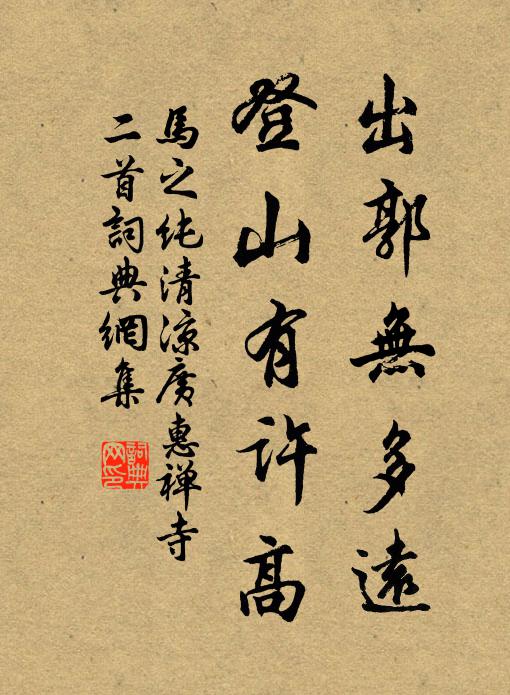 出郭無多遠
登山有许高
馬之純清凉廣惠禅寺
二首詞典網集
詞典
网印